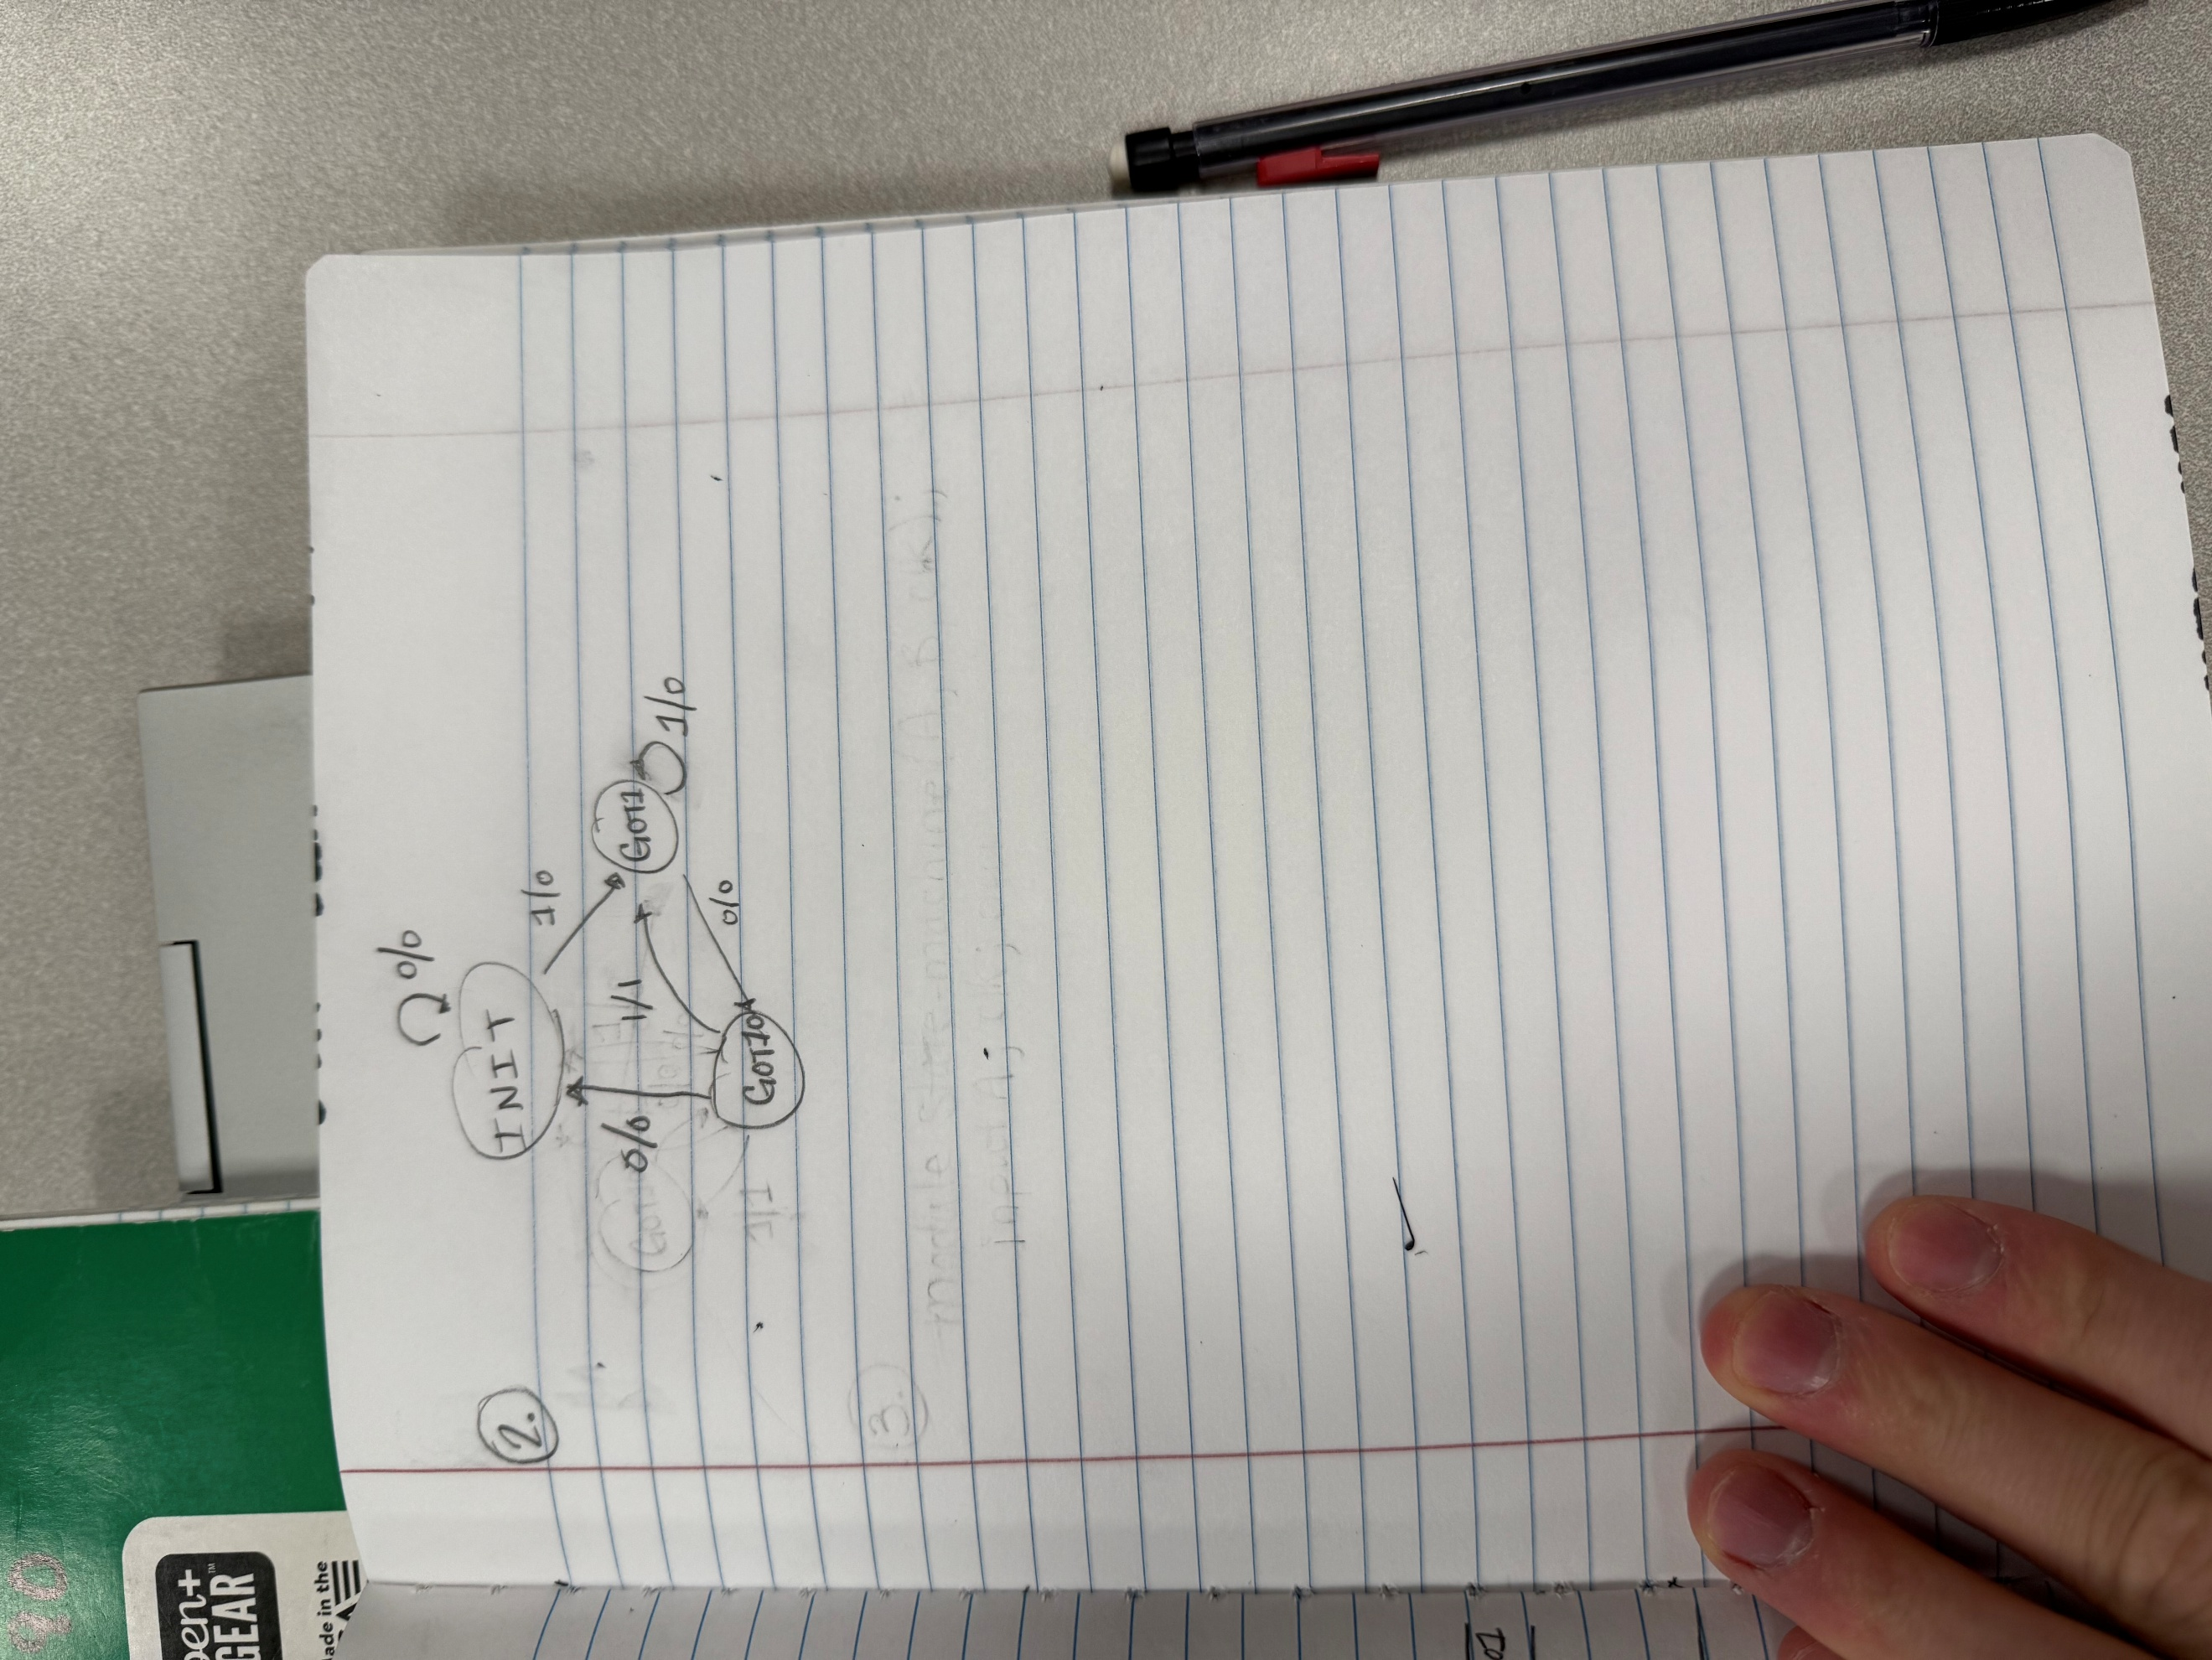 2.
0/0
INIT
1/0
0/0
1/1
GOT1
1/0
GOT10
0/0
1/1
3.
module state-machine(A, B, clk);
input A, clk;
pen+
GEAR™
Made in the
90